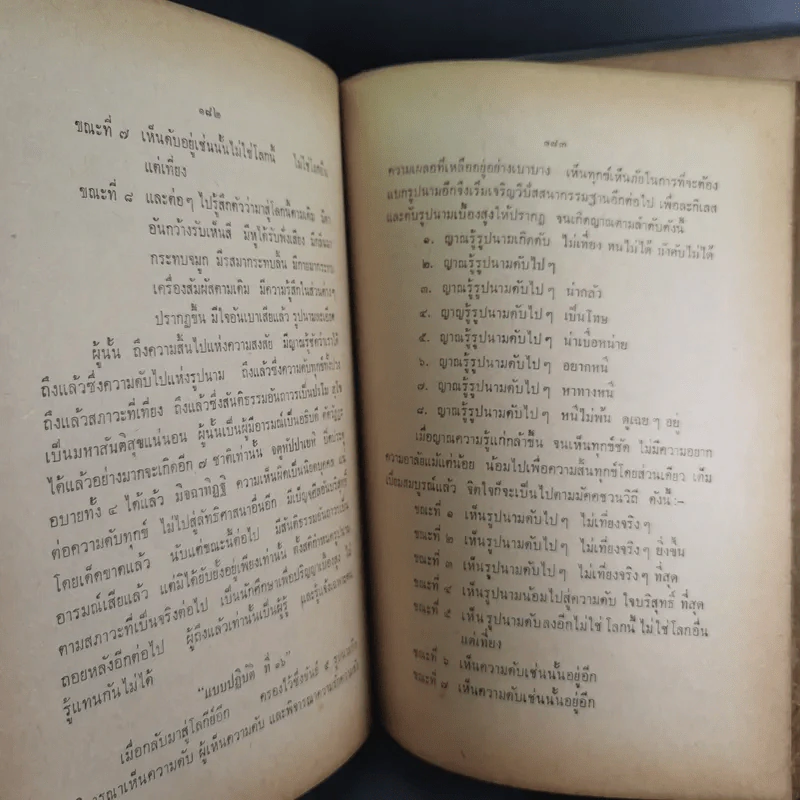 ๑๘๒
ขณะที่ ๗ เห็นดับอยู่เช่นนั้นไม่ใช่โลกนี้ ไม่ใช่โลกอื่น
แต่เที่ยง
ขณะที่ ๘ และต่อๆ ไปรู้สึกตัวว่ามาสู่โลกนี้ตามเดิม มีตา
อันกว้างรับเห็นสี มีหูได้รับฟังเสียง มีกลิ่นมา
กระทบจมูก มีรสมากระทบลิ้น มีกายมากระทบ
เครื่องสัมผัสตามเดิม มีความรู้สึกในส่วนต่างๆ
ปรากฏขึ้น มีใจอันเบาเสียแล้ว รูปนามละเอียด
ผู้นั้น ถึงความสิ้นไปแห่งความสงสัย มีญาณรู้ชัดว่าเราได้
ถึงแล้วซึ่งความดับไปแห่งรูปนาม ถึงแล้วซึ่งความดับทุกข์ทั้งปวง
ถึงแล้วสภาวะที่เที่ยง ถึงแล้วซึ่งสันติธรรมอันถาวรเป็นปรโม สุโข
เป็นมหาสันติสุขแน่นอน ผู้นั้นเป็นผู้มีอารมณ์เป็นอธิบดี
ได้แล้วอย่างมากจะเกิดอีก ๗ ชาติเท่านั้น จตูหปายหิ ปิดประตู
อบายทั้ง ๔ ได้แล้ว มิจฉาทิฏฐิ ความเห็นผิดเป็นนิยตบุคคล
ต่อความดับทุกข์ ไม่ไปสู่ลัทธิศาสนาอื่นอีก มีเบ็ญจศีลอันบริสุทธิ์
โดยเด็ดขาดแล้ว นับแต่ขณะนี้ต่อไป มีสันติธรรมอันถาวรเป็น
อารมณ์เสียแล้ว แต่มิได้ยับยั้งอยู่เพียงเท่านั้น ตั้งสติกำหนดรูปนาม
ตามสภาวะที่เป็นจริงต่อไป เป็นนักศึกษาเพื่อปริญญาเบื้องสูง ไม่
ถอยหลังอีกต่อไป ผู้ถึงแล้วเท่านั้นเป็นผู้รู้ และรู้แจ้งเฉพาะตน
รู้แทนกันไม่ได้
"แบบปฏิบัติ ที่ ๑๖"
เมื่อกลับมาสู่โลกีย์อีก ครองไว้ซึ่งขันธ์ ๕ รูปนามอีก
พิจารณาเห็นความดับ ผู้เห็นความดับ และพิจารณาความ
๑๘๓
ความเผลอที่เหลืออยู่อย่างเบาบาง เห็นทุกข์เห็นภัยในการที่จะต้อง
แบกรูปนามอีกจึงเริ่มเจริญวิปัสสนากรรมฐานอีกต่อไป เพื่อละกิเลส
และดับรูปนามเบื้องสูงให้ปรากฏ จนเกิดญาณตามลำดับดังนี้
๑. ญาณรู้รูปนามเกิดดับ ไม่เที่ยง ทนไม่ได้ บังคับไม่ได้
๒. ญาณรู้รูปนามดับไปๆ
๓. ญาณรู้รูปนามดับไปๆ น่ากลัว
๔. ญาณรู้รูปนามดับไปๆ เป็นโทษ
๕. ญาณรู้รูปนามดับไปๆ น่าเบื่อหน่าย
๖. ญาณรู้รูปนามดับไปๆ อยากหนี
๗. ญาณรู้รูปนามดับไปๆ หาทางหนี
๘. ญาณรู้รูปนามดับไปๆ หนีไม่พ้น ดูเฉยๆ อยู่
เมื่อญาณความรู้แก่กล้าขึ้น จนเห็นทุกข์ชัด ไม่มีความอยาก
ความอาลัยแม้แต่น้อย น้อมไปเพื่อความสิ้นทุกข์โดยส่วนเดียว เต็ม
เปี่ยมสมบูรณ์แล้ว จิตใจก็จะเป็นไปตามมัคคชวนวิถี ดังนี้ :-
ขณะที่ ๑ เห็นรูปนามดับไปๆ ไม่เที่ยงจริงๆ
ขณะที่ ๒ เห็นรูปนามดับไปๆ ไม่เที่ยงจริงๆ ยิ่งขึ้น
ขณะที่ ๓ เห็นรูปนามดับไปๆ ไม่เที่ยงจริงๆ ที่สุด
ขณะที่ ๔ เห็นรูปนามน้อมไปสู่ความดับ ใจบริสุทธิ์ ที่สุด
ขณะที่ ๕ เห็นรูปนามดับลงอีกไม่ใช่โลกนี้ ไม่ใช่โลกอื่น
แต่เที่ยง
ขณะที่ ๖ เห็นความดับเช่นนั้นอยู่อีก
ขณะที่ ๗ เห็นความดับเช่นนั้นอยู่อีก